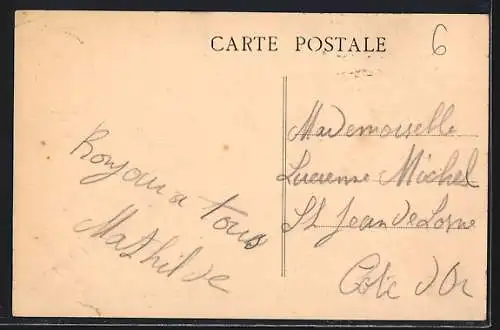 CARTE POSTALE
6
Bonjour a tous
Mathilde
Mademoiselle
Lucienne Michel
St Jean de Losne
Cote d'Or